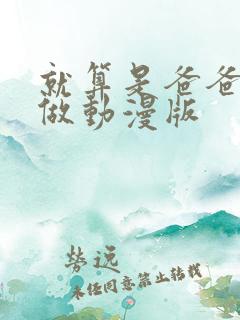 就算是爸爸
做動漫版
勞远
未经同意禁止转载